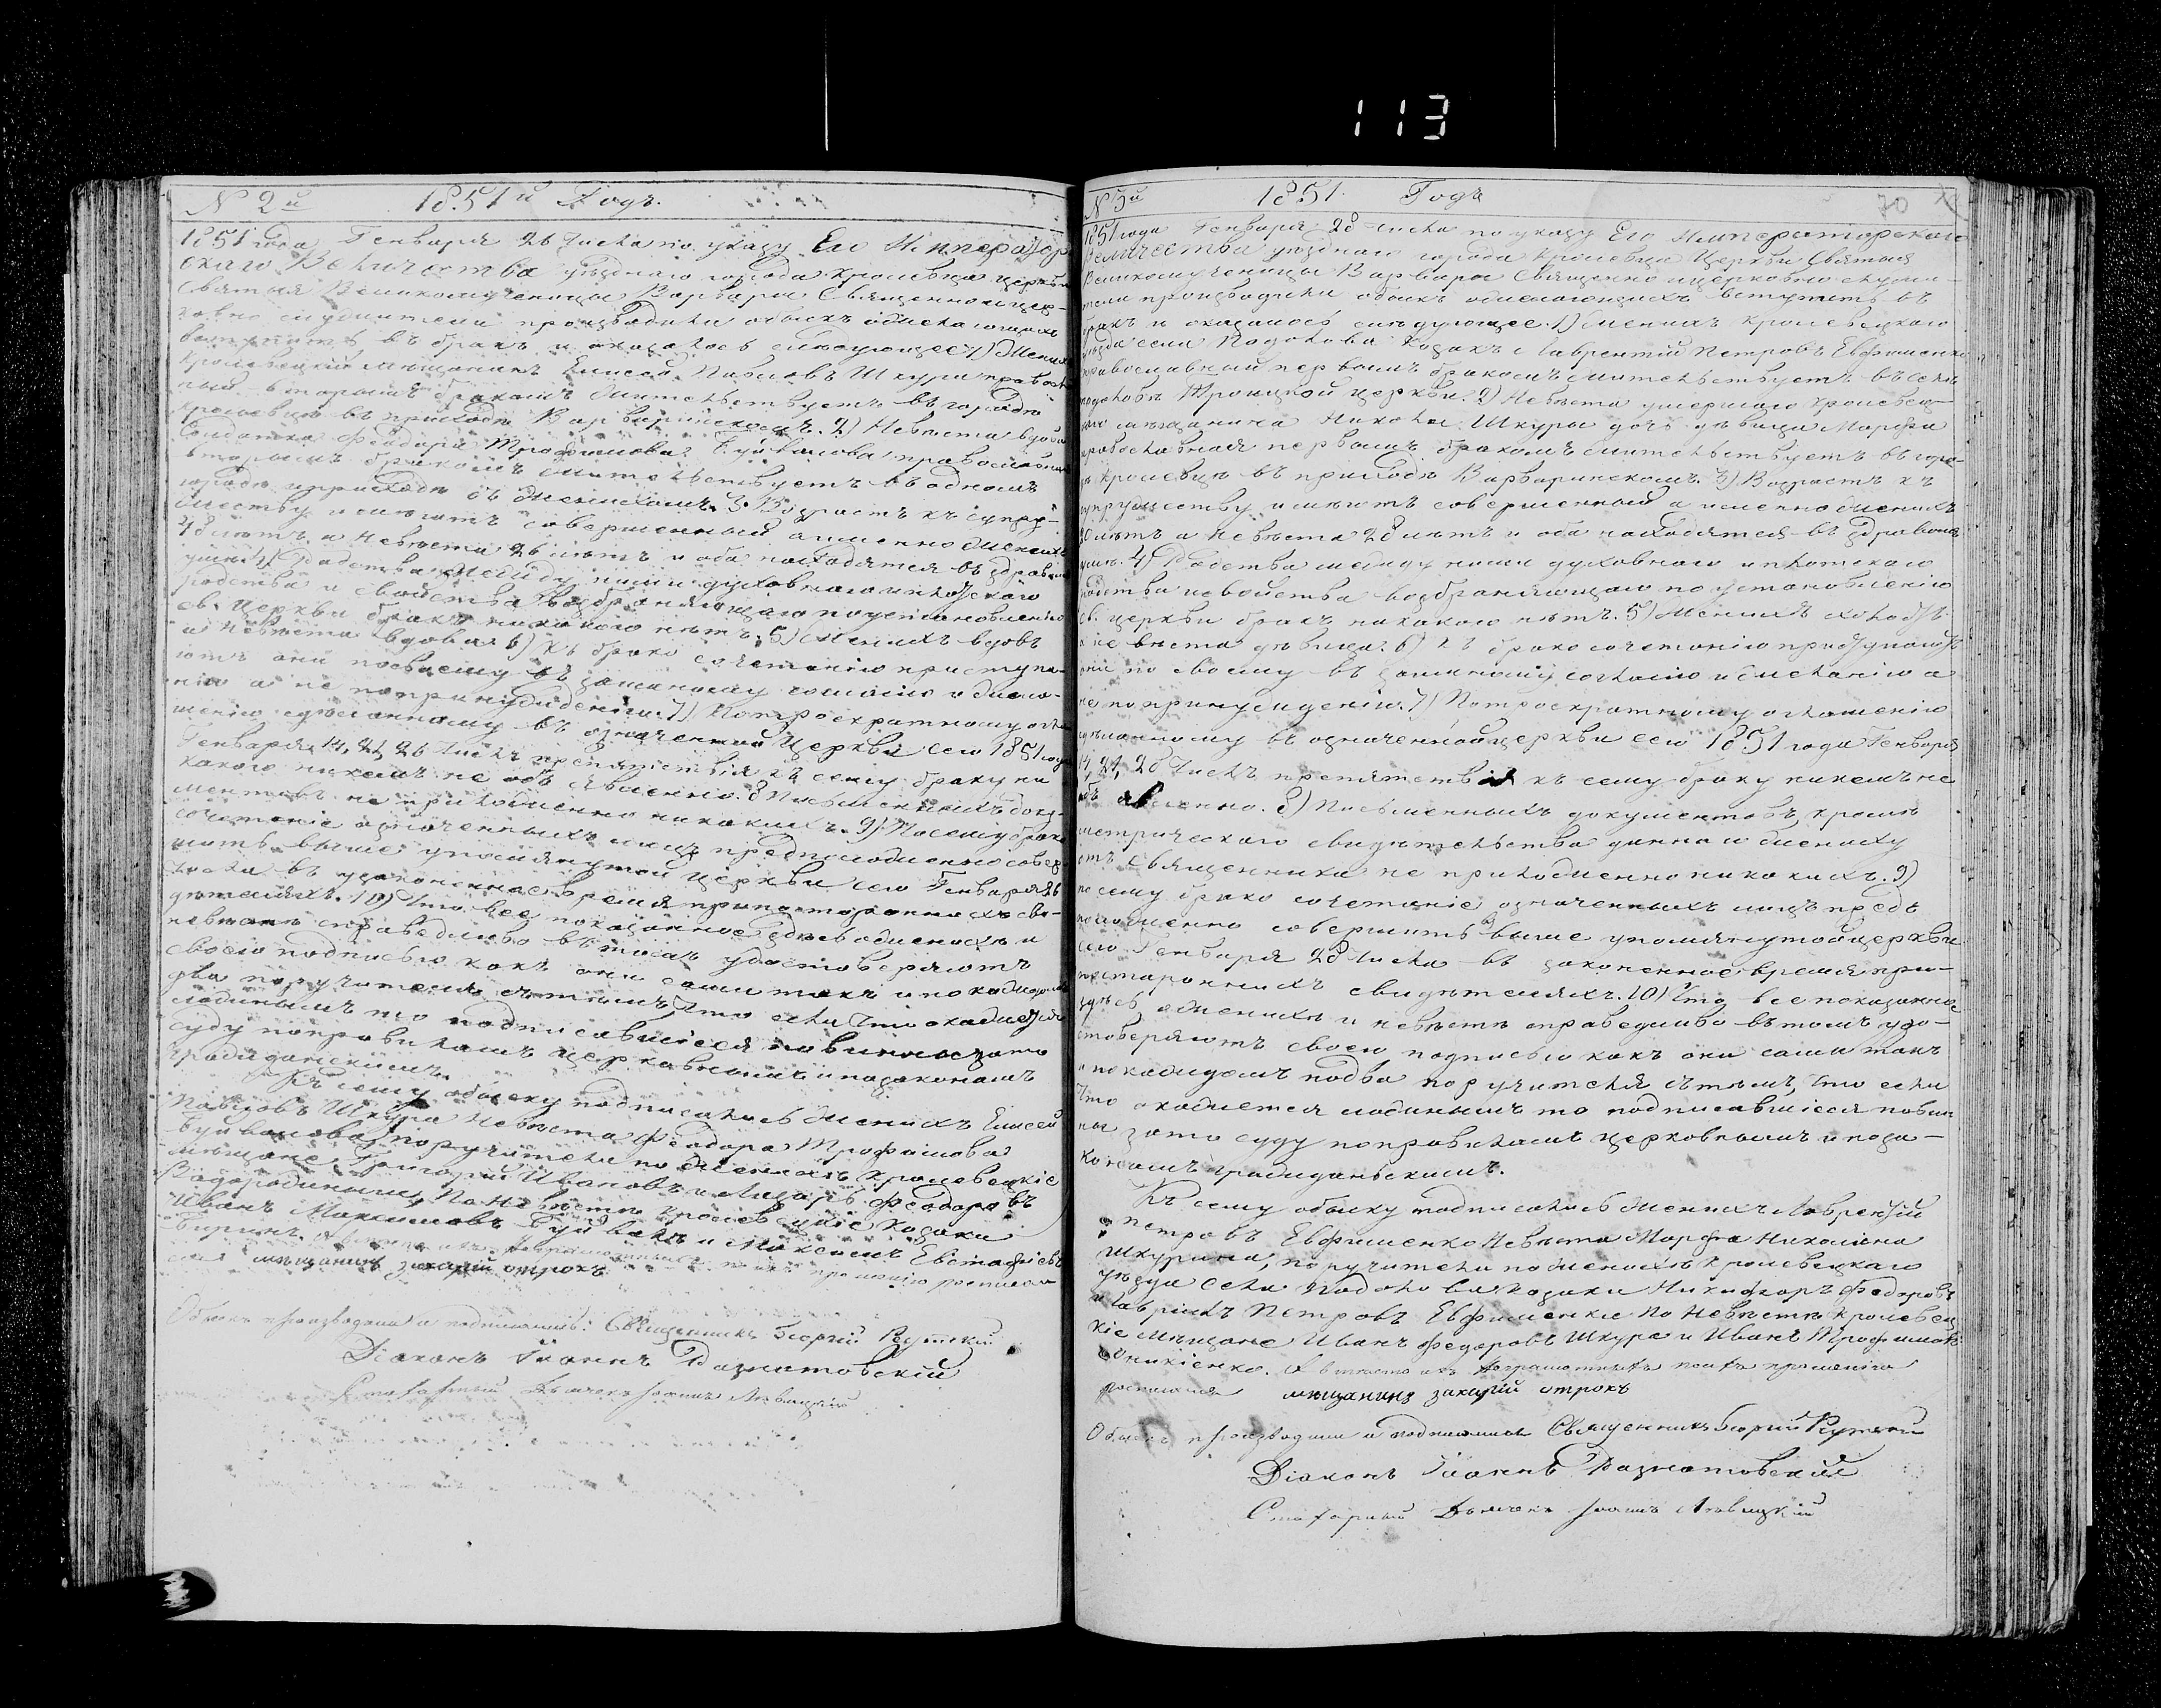 113
N 2й 1851й Годъ.
1851 года Генваря 26 числа по указу Его Император
скаго Величества уѣзднаго города Кролевца церкви
Святыя Великомученицы Варвары Священно и цер-
ковно служители производили обыскъ о желающихъ
вступить въ бракъ и оказалось слѣдующее 1) Женихъ
Кролевецкій мѣщанинъ Елисей Павловъ Шкура православ
ный вторымъ бракомъ жительствуетъ въ городѣ
Кролевцѣ въ приходѣ Варваринскомъ. 2) Невѣста вдова
Солдатка Феодора Трофимова Буйвалова православная
вторымъ бракомъ жительствуетъ въ одномъ
городѣ и приходѣ съ женихомъ. 3. Возрастъ къ супру-
жеству имѣютъ совершенный а именно женихъ
48 лѣтъ а невѣста 26 лѣтъ и оба находятся въ здравомъ
умѣ. 4) Родства между ними духовнаго и плотскаго
родства и свойства возбраняющаго по установленію
св. Церкви бракъ никакого нѣтъ. 5) Женихъ вдовъ
а Невѣста вдова. 6) къ брако сочетанію приступа-
ютъ они по своему взаимному согласію и жела-
нію а не по принужденію. 7) По троекратному огла
шенію сдѣланному въ означенной Церкви сего 1851 года
Генваря 14, 21, 26 числъ препятствія къ сему браку ни
какого никемъ не объявлено. 8 Письменныхъ доку-
ментовъ не приложенно никакихъ. 9) Посему брако
сочетаніе означенныхъ лицъ предположенно совер
шить выше упомянутой церкви сего Генваря 26
числа въ узаконенное время при постороннихъ сви-
дѣтеляхъ. 10) Что все показанное здѣсь о женихѣ и
невѣстѣ справедливо въ томъ удостовѣряютъ
своею подписью какъ они сами такъ и по каждомъ
два поручителя съ тѣмъ, что если что окажется
ложнымъ то подписавшіеся повинны за то
суду по правиламъ церковнымъ и по законамъ
гражданскимъ.
Къ сему обыску подписались женихъ Елисей
Павловъ Шкура Невѣста Феодора Трофимова
Буйвалова, поручители по женихѣ Кролевецкіе
мѣщане Григорій Ивановъ и Лазарь Феодоровъ
По невѣстѣ кролевецкіе козаки
Иванъ Максимовъ Буйвалъ и Максимъ Евстафіевъ
мѣщанинъ захарій отрокъ
Обыскъ производили и подписались: Священникъ Георгій Рутскій
Діаконъ Іоаннъ Базнатовскій
N 3й 1851 Годъ 70
1851 года Генваря 28 числа по указу Его Императорскаго
Величества уѣзднаго города Кролевца Церкви Святыя
Великомученицы Варвары Священно и церковно служи-
тели производили обыскъ о желающихъ вступить въ
бракъ и оказалось слѣдующее. 1) Женихъ Кролевецкаго
уѣзда села Подолова Козакъ Лаврентій Петровъ Евфименко
православный первымъ бракомъ жительствуетъ въ селѣ
Подоловѣ Троицкой церкви. 2) Невѣста умершаго Кролевец-
каго мѣщанина Николы Шкуры дочь дѣвица Марфа
православная первымъ бракомъ жительствуетъ въ горо-
дѣ Кролевцѣ въ приходѣ Варваринскомъ. 3) Возрастъ къ
супружеству имѣютъ совершенный а именно женихъ
20 лѣтъ а Невѣста 28 лѣтъ и оба находятся въ здравомъ
умѣ. 4) Родства между ними духовнаго и плотскаго
родства и свойства возбраняющаго по установленію
св. церкви бракъ никакого нѣтъ. 5) Женихъ холостъ
а невѣста дѣвица. 6) къ брако сочетанію приступаютъ
они по своему взаимному согласію и желанію а
не по принужденію. 7) По троекратному оглашенію
сдѣланному въ означенной церкви сего 1851 года Генваря
14, 21, 26 числъ препятствія къ сему браку никемъ не
объявленно. 8) Письменныхъ документовъ, кромѣ
метрическаго свидѣтельства даннаго жениху
отъ Священника не приложенно никакихъ. 9)
по сему брако сочетаніе означенныхъ лицъ предъ
положенно совершить въ выше упомянутой церкви
сего Генваря 28 числа въ законенное время при
постороннихъ свидѣтеляхъ. 10) Что все показанное
здѣсь о женихѣ и невѣстѣ справедливо въ томъ удо-
стоверяютъ своею подписью какъ они сами такъ
и по каждомъ по два поручителя съ тѣмъ, что если
что окажется ложнымъ то подписавшіеся повин
ны за то суду по правиламъ церковнымъ и по за-
конамъ гражданьскимъ.
Къ сему обыску подписались женихъ Лаврентій
Петровъ Евфименко Невѣста Марфа Николаина
Шкурина, поручители по женихѣ кролевецкаго
уѣзда села Подолова козаки Никифоръ Федоровъ
и Гавріилъ Петровъ Евфименки По Невѣстѣ Кролевец
кіе мѣщане Иванъ Федоровъ Шкура и Иванъ Трофимовъ
Оникіенко. А вмѣсто ихъ неграмотныхъ по ихъ прошенію
росписался мѣщанинъ захарій отрокъ
Обыскъ производили и подписались Священникъ Георгій Рутскій
Діаконъ Іоаннъ Базнатовскій